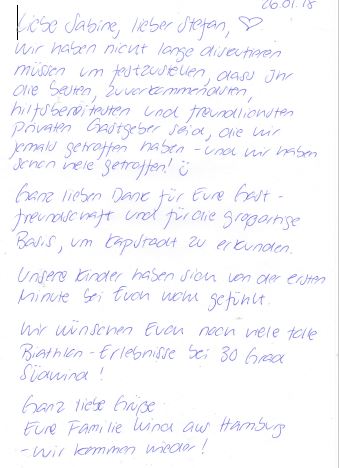 26.01.18
Liebe Sabine, lieber Stefan, ♡
wir haben nicht lange diskutieren
müssen um festzustellen, dass Ihr
die besten, zuvorkommendsten,
hilfsbereitesten und freundlichsten
privaten Gastgeber seid, die wir
jemals getroffen haben - und wir haben
schon viele getroffen! ☺
Ganz lieben Dank für Eure Gast-
freundschaft und für die großartige
Basis, um Kapstadt zu erkunden.
Unsere Kinder haben sich von der ersten
Minute bei Euch wohl gefühlt.
Wir wünschen Euch noch viele tolle
Biathlon-Erlebnisse bei 30 Grad
Südwind!
Ganz liebe Grüße
Eure Familie Wind aus Hamburg
- Wir kommen wieder!